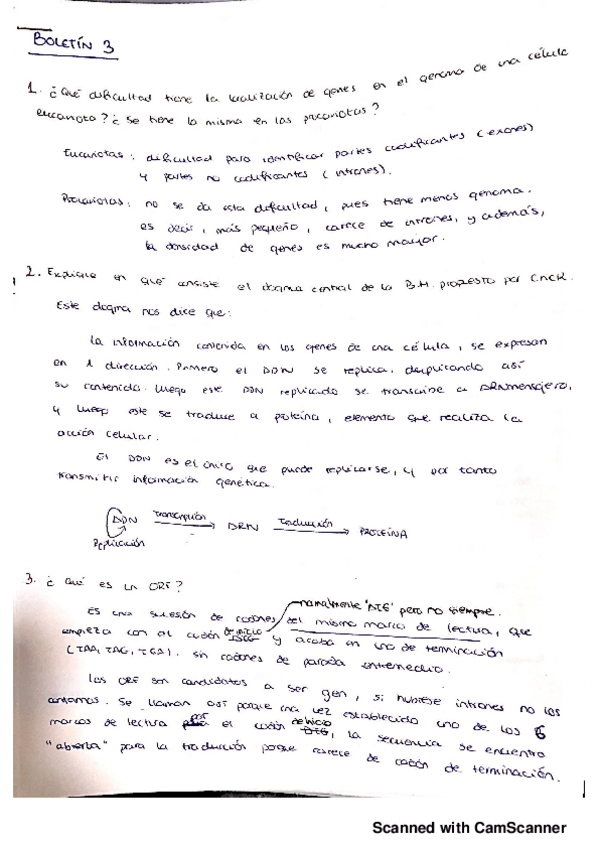 BOLETÍN 3
1. ¿Qué dificultad tiene la localización de genes en el genoma de una célula
eucariota? ¿Se tiene la misma en las procariotas?
Eucariotas: dificultad para identificar partes codificantes (exones)
y partes no codificantes (intrones).
Procariotas: no se da esta dificultad, pues tiene menos genoma.
es decir, más pequeño, carece de intrones, y además,
la densidad de genes es mucho mayor.
2. Explique en qué consiste el dogma central de la B.M. propuesto por Crick.
Este dogma nos dice que:
La información contenida en los genes de una célula, se expresan
en 1 dirección. Primero el ADN se replica, duplicando así
su contenido. Luego este ADN replicado se transcribe a ARNmensajero,
y luego este se traduce a proteína, elemento que realiza la
acción celular.
El ADN es el único que puede replicarse, y por tanto
transmitir información genética.
ADN Transcripción ARN Traducción PROTEÍNA
Replicación
3. ¿Qué es un ORF?
normalmente "ATG" pero no siempre.
Es una sucesión de codones del mismo marco de lectura, que
empieza con el codón de inicio y acaba en uno de terminación
(TAA, TAG, TGA). sin codones de parada entremedio.
Los ORF son candidatos a ser gen, si hubiese intrones no los
Se llaman así porque una vez establecido uno de los 6
marcos de lectura por el codón de inicio, la secuencia se encuentra
"abierta" para la traducción porque carece de codón de terminación.
Scanned with CamScanner